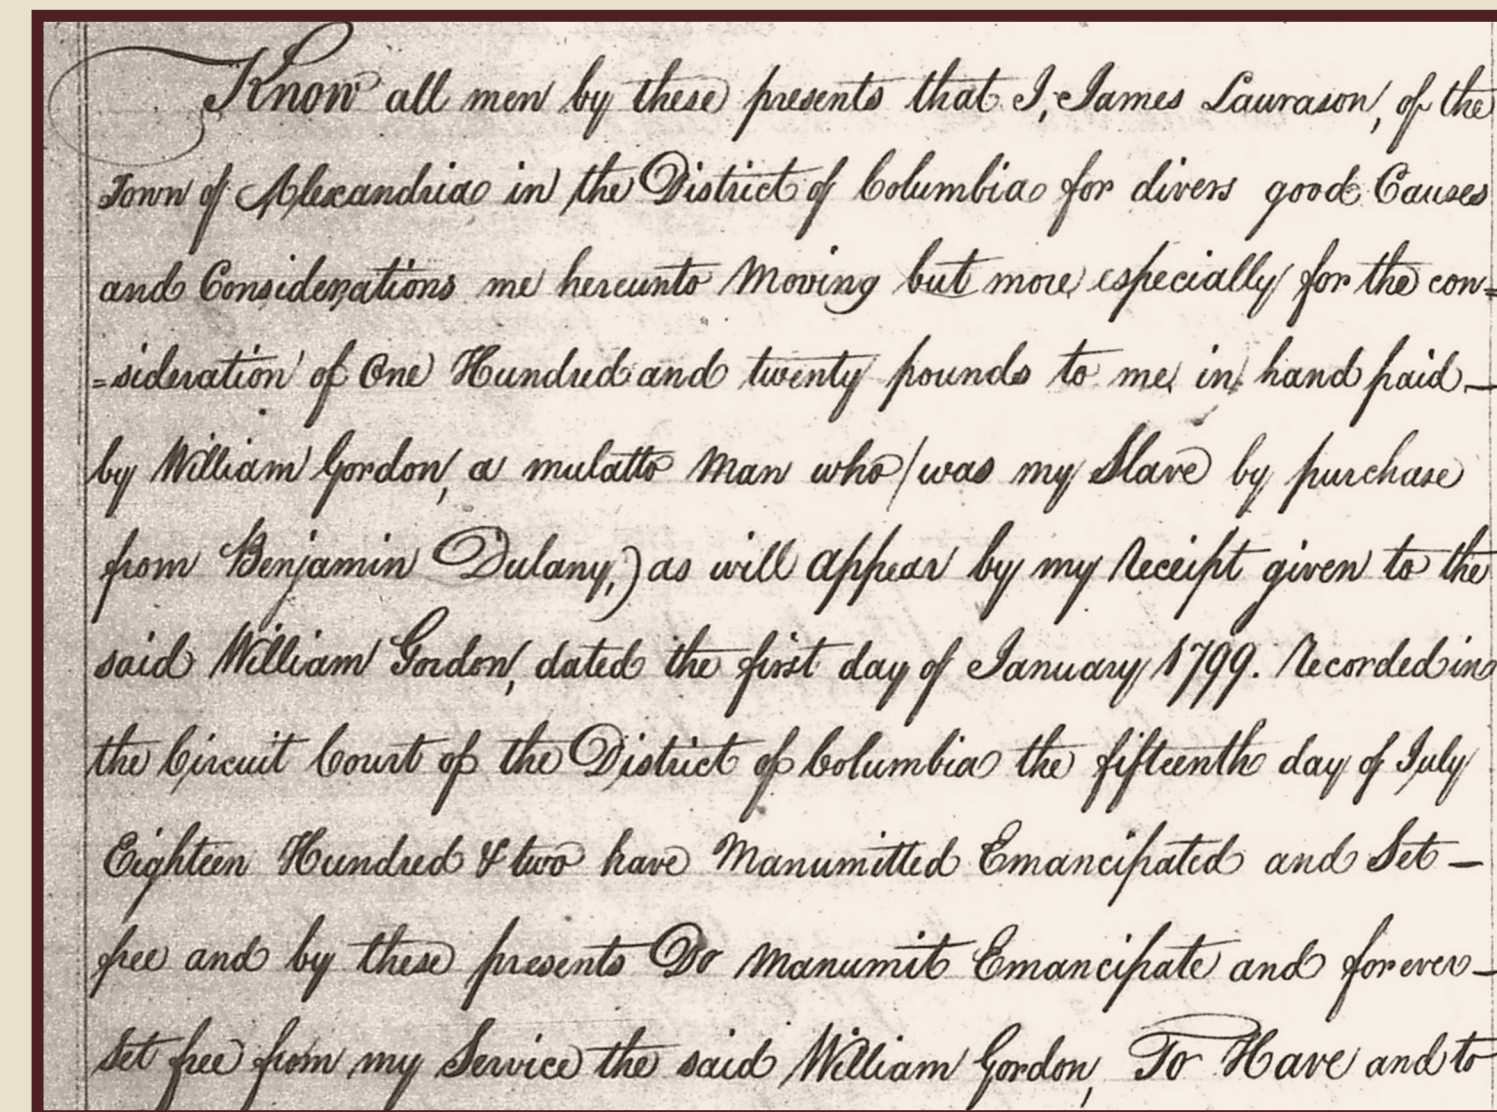 Know all men by these presents that I, James Laurason, of the
Town of Alexandria in the District of Columbia for divers good Causes
and Considerations me hereunto Moving but more especially for the con=
=sideration of One Hundred and twenty pounds to me in hand paid —
by William Gordon, a mulatto Man who (was my Slave by purchase
from Benjamin Dulany,) as will appear by my Receipt given to the
said William Gordon, dated the first day of January 1799. Recorded in
the Circuit Court of the District of Columbia the fifteenth day of July
Eighteen Hundred & two have Manumitted Emancipated and Set —
free and by these presents Do Manumit Emancipate and forever —
Set free from my Service the said William Gordon, To Have and to